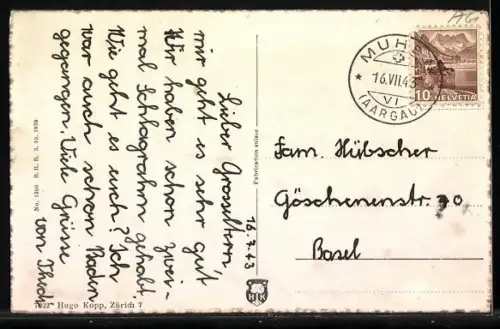 16.7.43
Lieber Grosseltern,
mir geht es sehr gut
Wir haben schon zwei-
mal Schlagrahm gehabt.
Wie geht es euch? Ich
war auch schon Baden
gegangen. Viele Grüsse
von
No. 1296 B. R. B. 3. 10. 1939
Fabrication suisse
7022 Hugo Kopp, Zürich 7
HK
MUHEN
16.VII.43
VI
(AARGAU)
10 HELVETIA
Fam. Hübscher
Göschenenstr. 70
Basel
AG